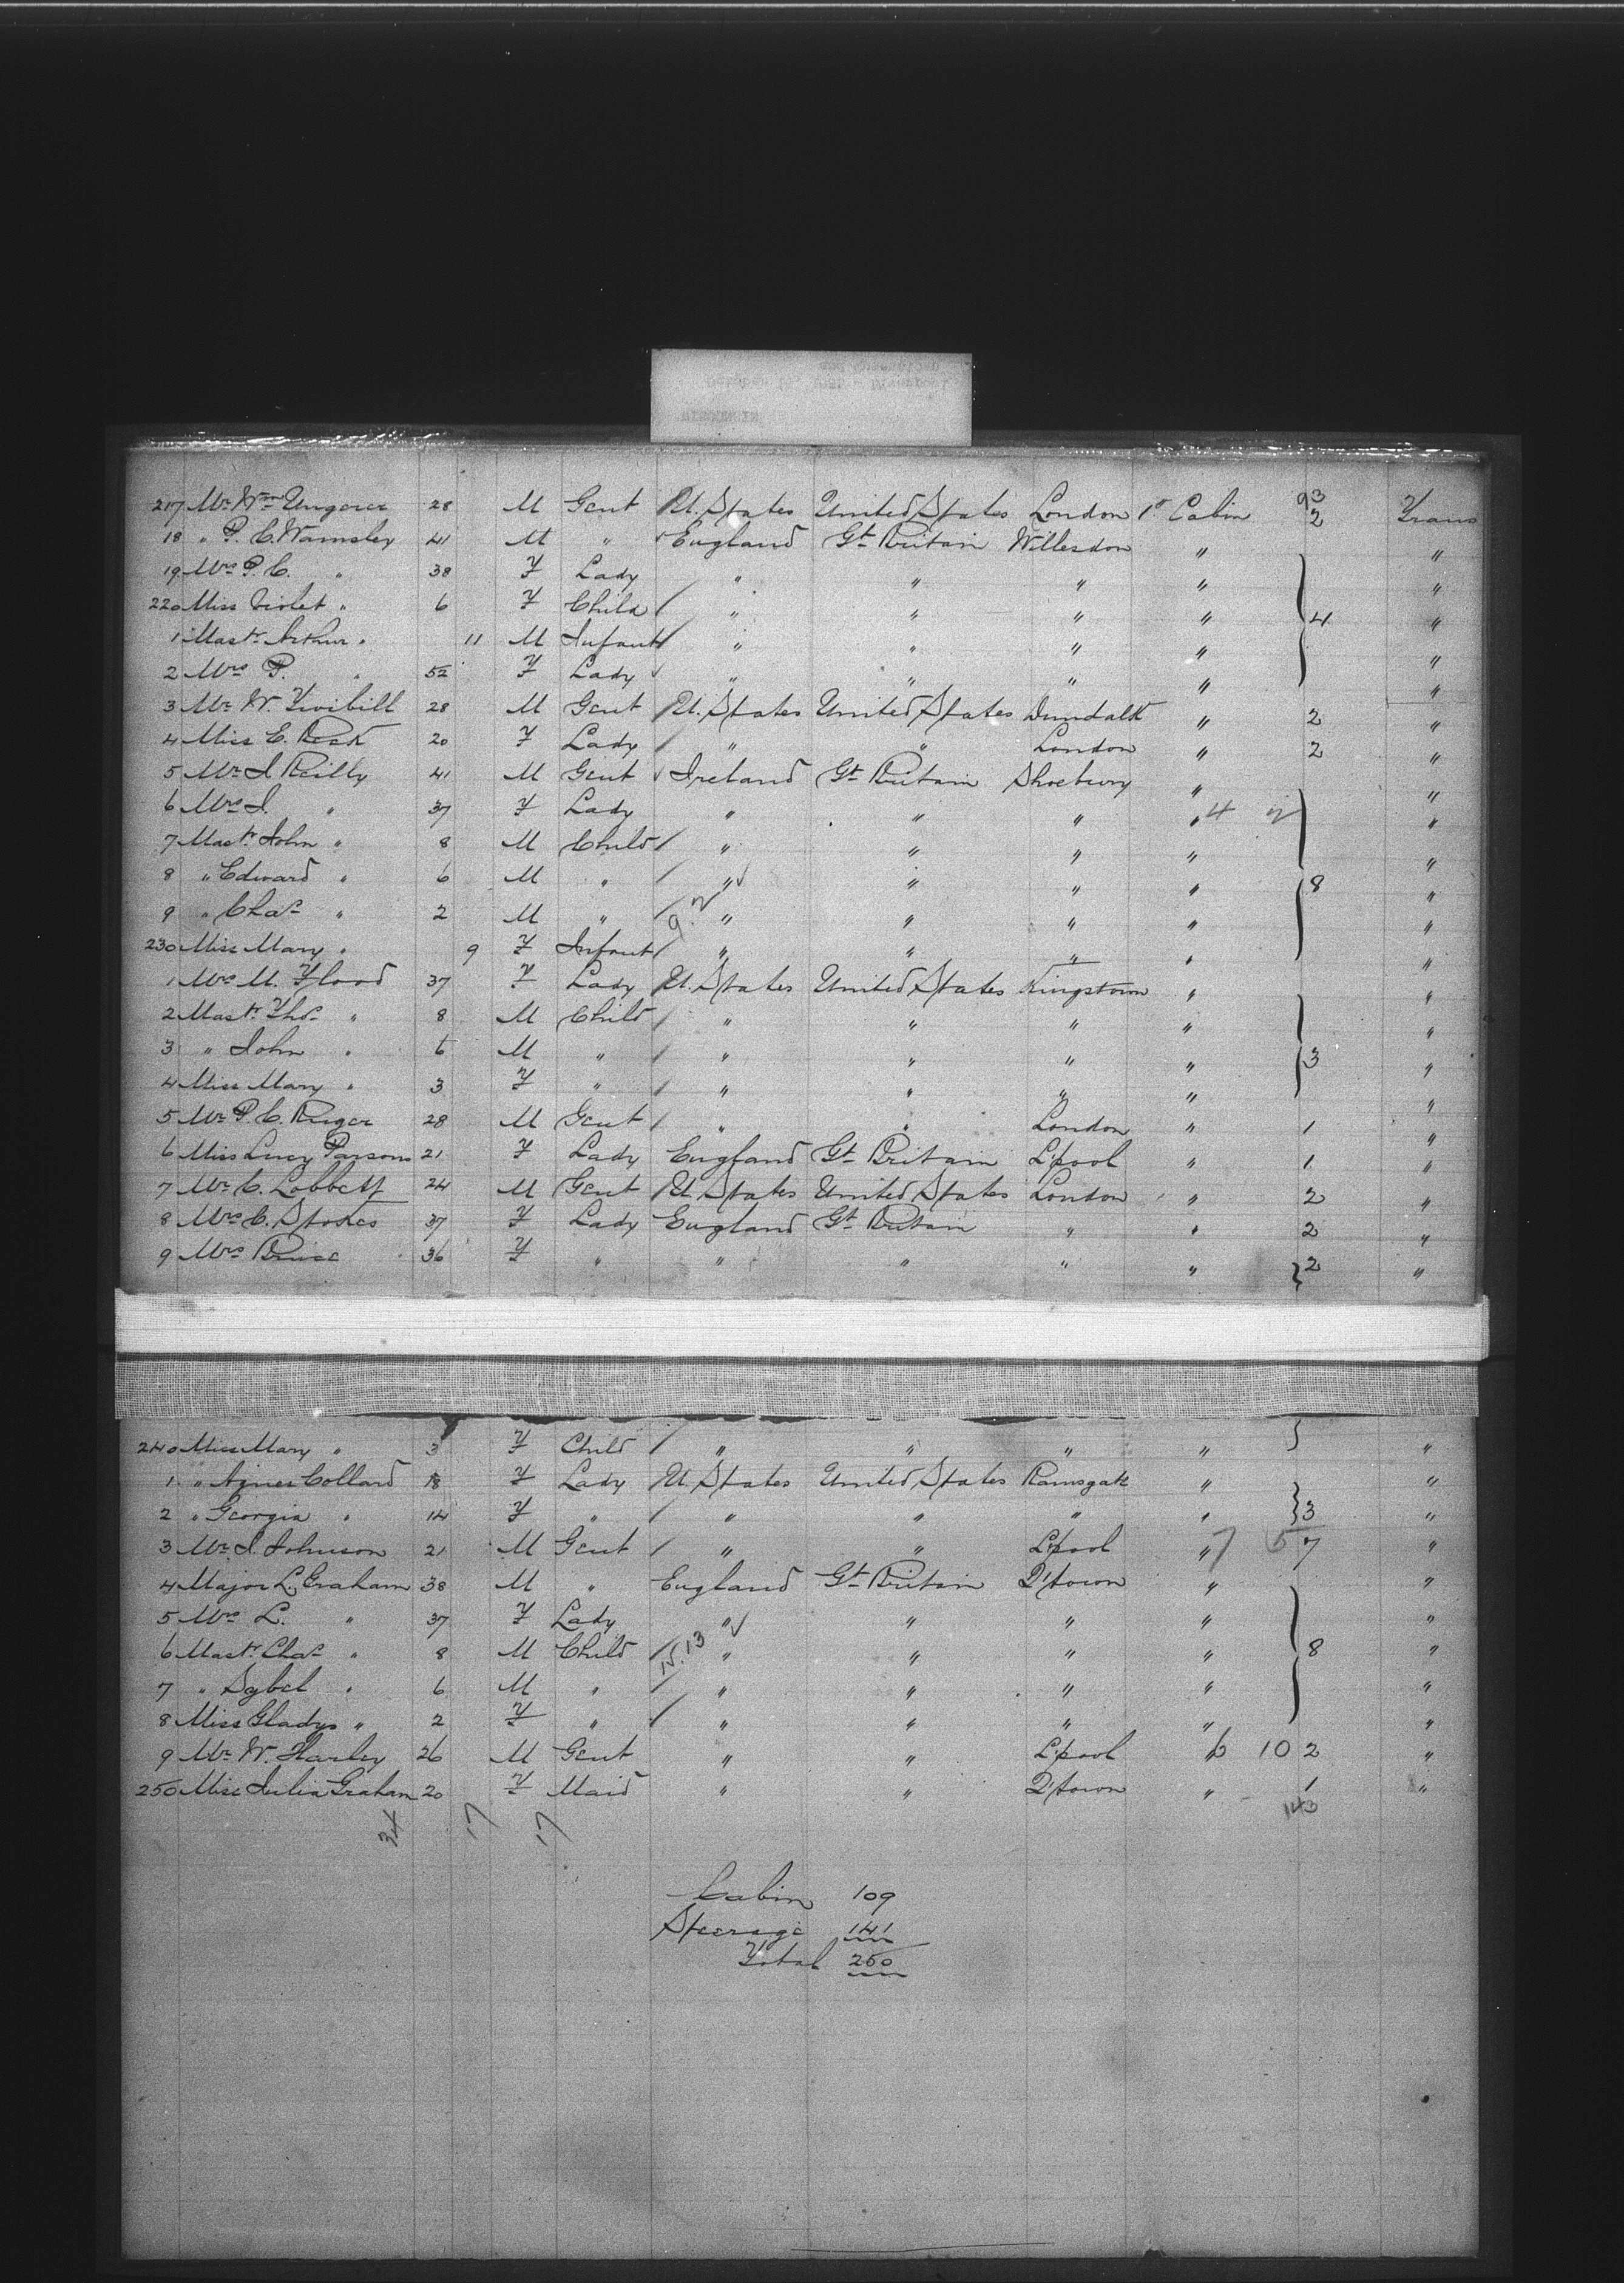 217 Mr. Wm Ungerer 28 M Gent U. States United States London 1st Cabin 93 2 Trans
18 " P. C. Wamsley 41 M " England Gt. Britain Willesdon " "
19 Mrs P. C. " 38 F Lady " " " " "
220 Miss Violet " 6 F Child " " " " 4 "
1 Mastr. Arthur " 11 M Infant " " " " "
2 Mrs P. " 52 F Lady " " " " "
3 Mr. W. Twibill 28 M Gent U. States United States Dundalk " 2 "
4 Miss E. Beck 20 F Lady " " London " 2 "
5 Mr. J Reilly 41 M Gent Ireland Gt. Britain Shoebury " "
6 Mrs J. " 37 F Lady " " " " 4 "
7 Mastr. John " 8 M Child " " " " "
8 " Edward " 6 M " " " " " 8 "
9 " Chas " 2 M " " " " " "
230 Miss Mary " 9 F Infant " " " " "
1 Mrs M. Flood 37 F Lady U. States United States Kingstown " "
2 Mastr. Thos " 8 M Child " " " " "
3 " John " 6 M " " " " " 3 "
4 Miss Mary " 3 F " " " " " "
5 Mr. P. C. Ruger 28 M Gent " " London " 1 "
6 Miss Lucy Parsons 21 F Lady England Gt. Britain L'pool " 1 "
7 Mr. C. Lobbett 24 M Gent U. States United States London " 2 "
8 Mrs C. Stokes 37 F Lady England Gt. Britain " " 2 "
9 Mrs Bruce 36 F " " " " " 2 "
240 Miss Mary " 3 F Child " " " " "
1 " Agnes Collard 18 F Lady U. States United States Ramsgate " "
2 " Georgia " 14 F " " " " " 3 "
3 Mr. J. Johnson 21 M Gent " " L'pool " 7 5 7 "
4 Major L. Graham 38 M " England Gt. Britain Q'town " "
5 Mrs L. " 37 F Lady " " " " "
6 Mastr. Chas " 8 M Child 15.13 " " " " 8 "
7 " Sybel " 6 M " " " " " "
8 Miss Gladys " 2 F " " " " " "
9 Mr. W. Harley 26 M Gent " " L'pool " 10 2 "
250 Miss Julia Graham 20 F Maid " " Q'town " 1 "
34 17 17 143
Cabin 109
Steerage 141
Total 250